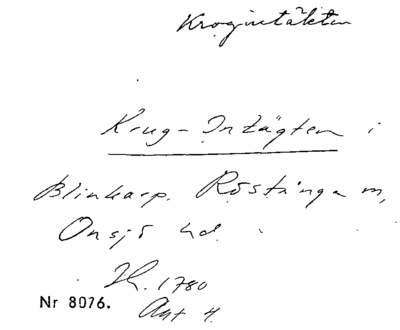 Krogintäkten
Krug-Intägten i
Blinkarp. Röstånga sn,
Onsjö hd.
H. 1780
Ant 4.
Nr 8076.